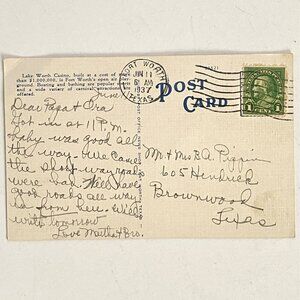 Lake Worth Casino, built at a cost of more
than $1,000,000, is Fort Worth's open air play-
ground. Boating and bathing are popular sports
and a wide variety of carnival attractions are
offered.
FORT WORTH
JUN 11
6 AM
1937
TEXAS
POST
CARD
Dear Papa &
Got in at 11 P.M.
baby was good all
the way. We came
the short way roads
were bad. Will have
good roads all way
from here. Will
write tomorrow
Love Martha & Bro.
Mr. & Mrs. E. A. Pippin
605 Hendrick
Brownwood
Texas